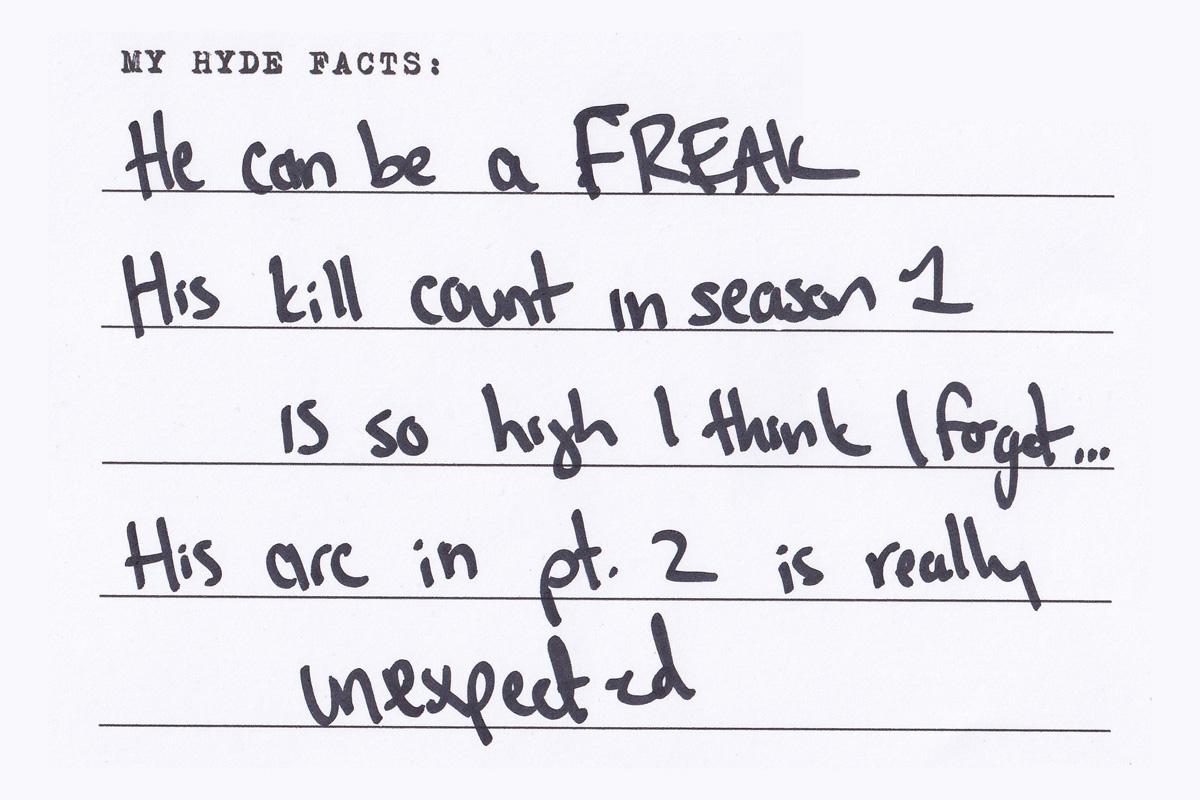 MY HYDE FACTS:
He can be a FREAK
His kill count in season 1
is so high I think I forget...
His arc in pt. 2 is really
unexpected